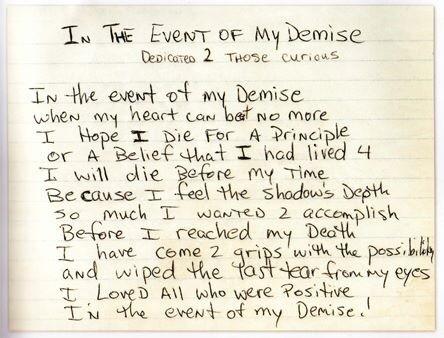 In The Event of My Demise
Dedicated 2 Those curious
In the event of my Demise
when my heart can beat no more
I Hope I Die For A Principle
or A Belief that I had lived 4
I will die Before my Time
Because I feel the shadow's Depth
so much I wanted 2 accomplish
Before I reached my Death
I have come 2 grips with the possibility
and wiped the last tear from my eyes
I Loved All who were Positive
In the event of my Demise!